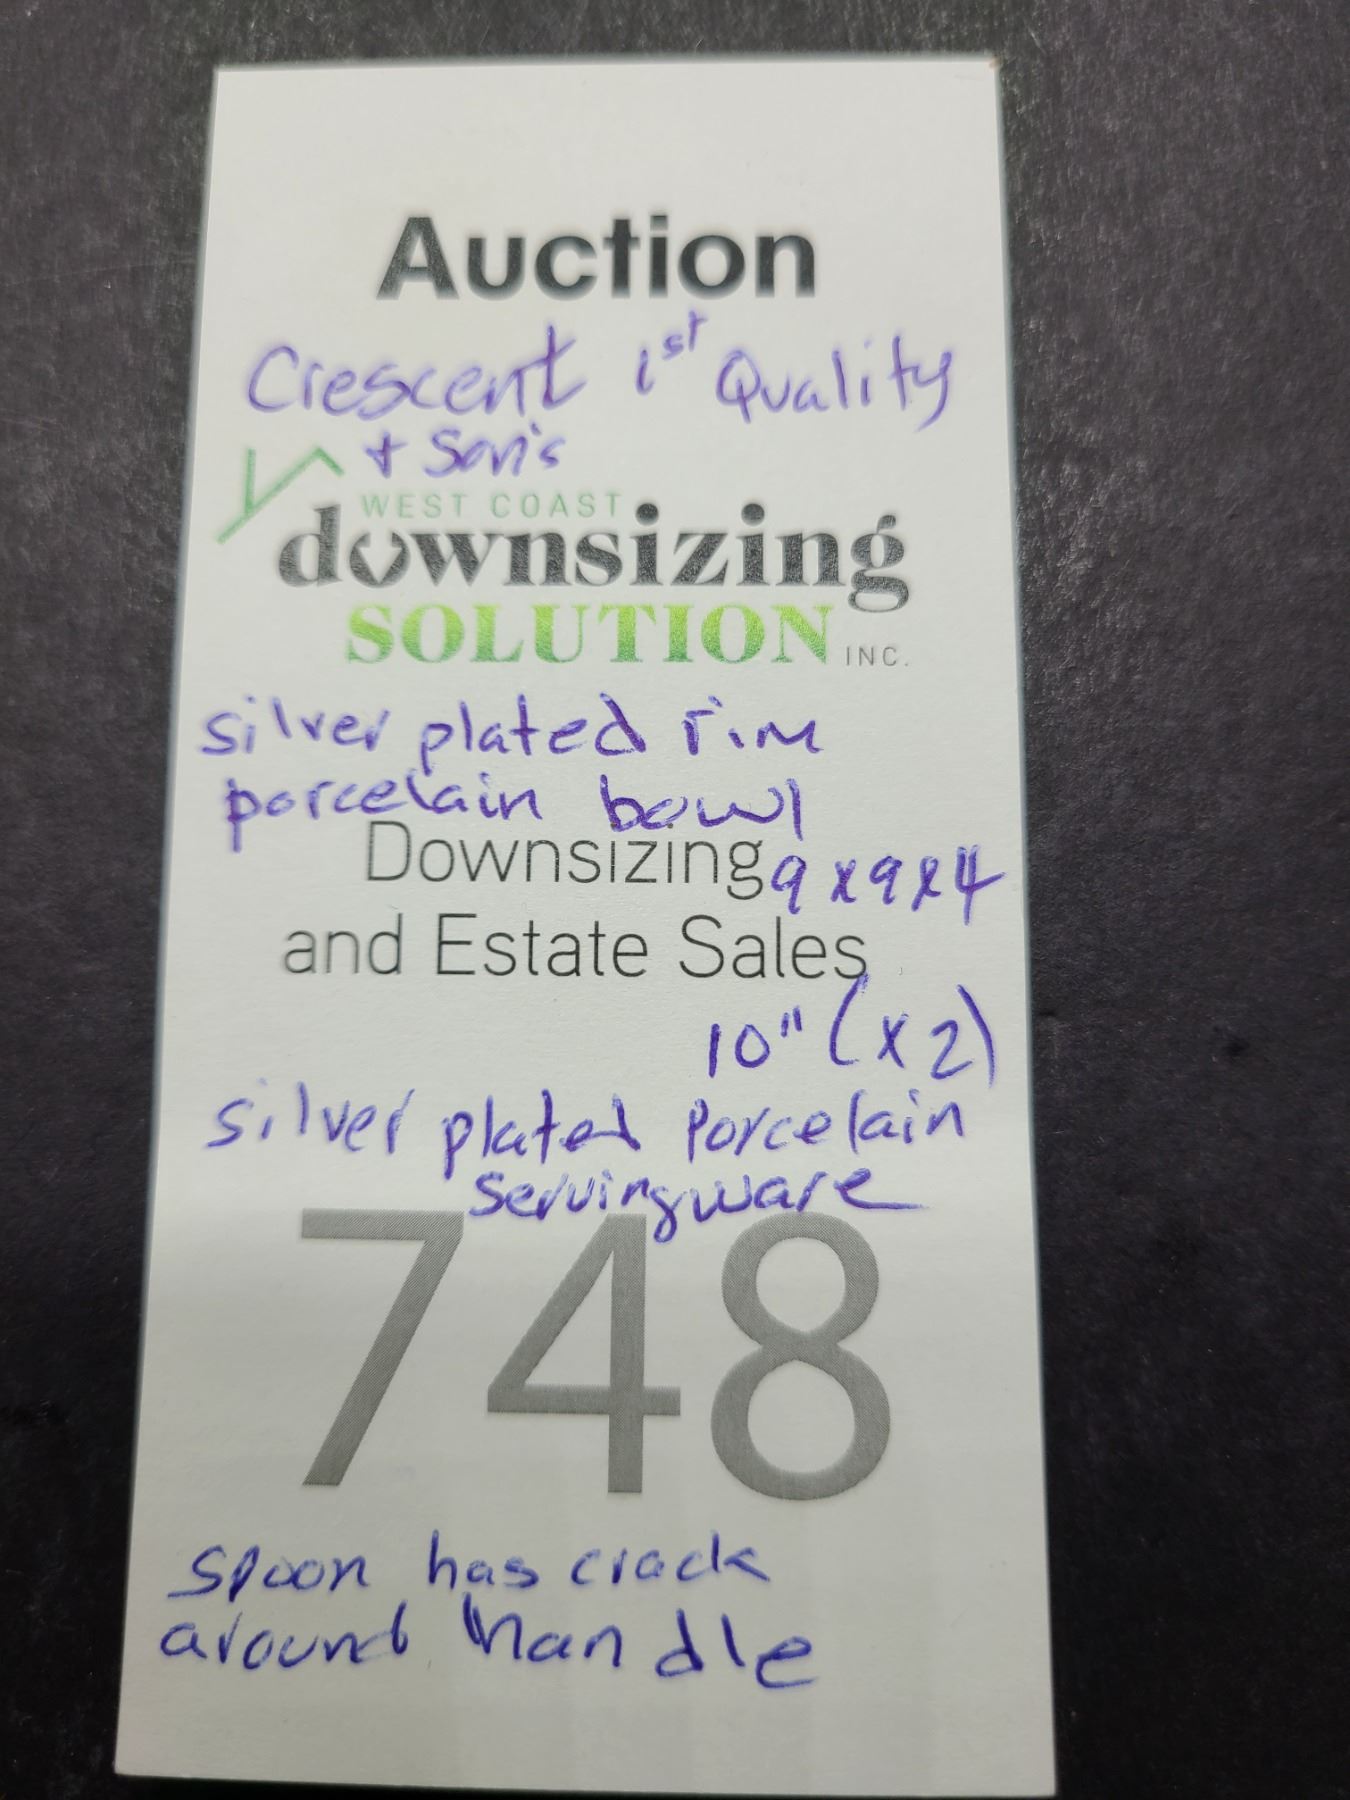 Auction
Crescent 1st Quality
+ Son's
WEST COAST
downsizing
SOLUTION INC.
silver plated rim
porcelain bowl
Downsizing 9x9x4
and Estate Sales
10" (x2)
silver plated porcelain
servingware
748
spoon has crack
around handle